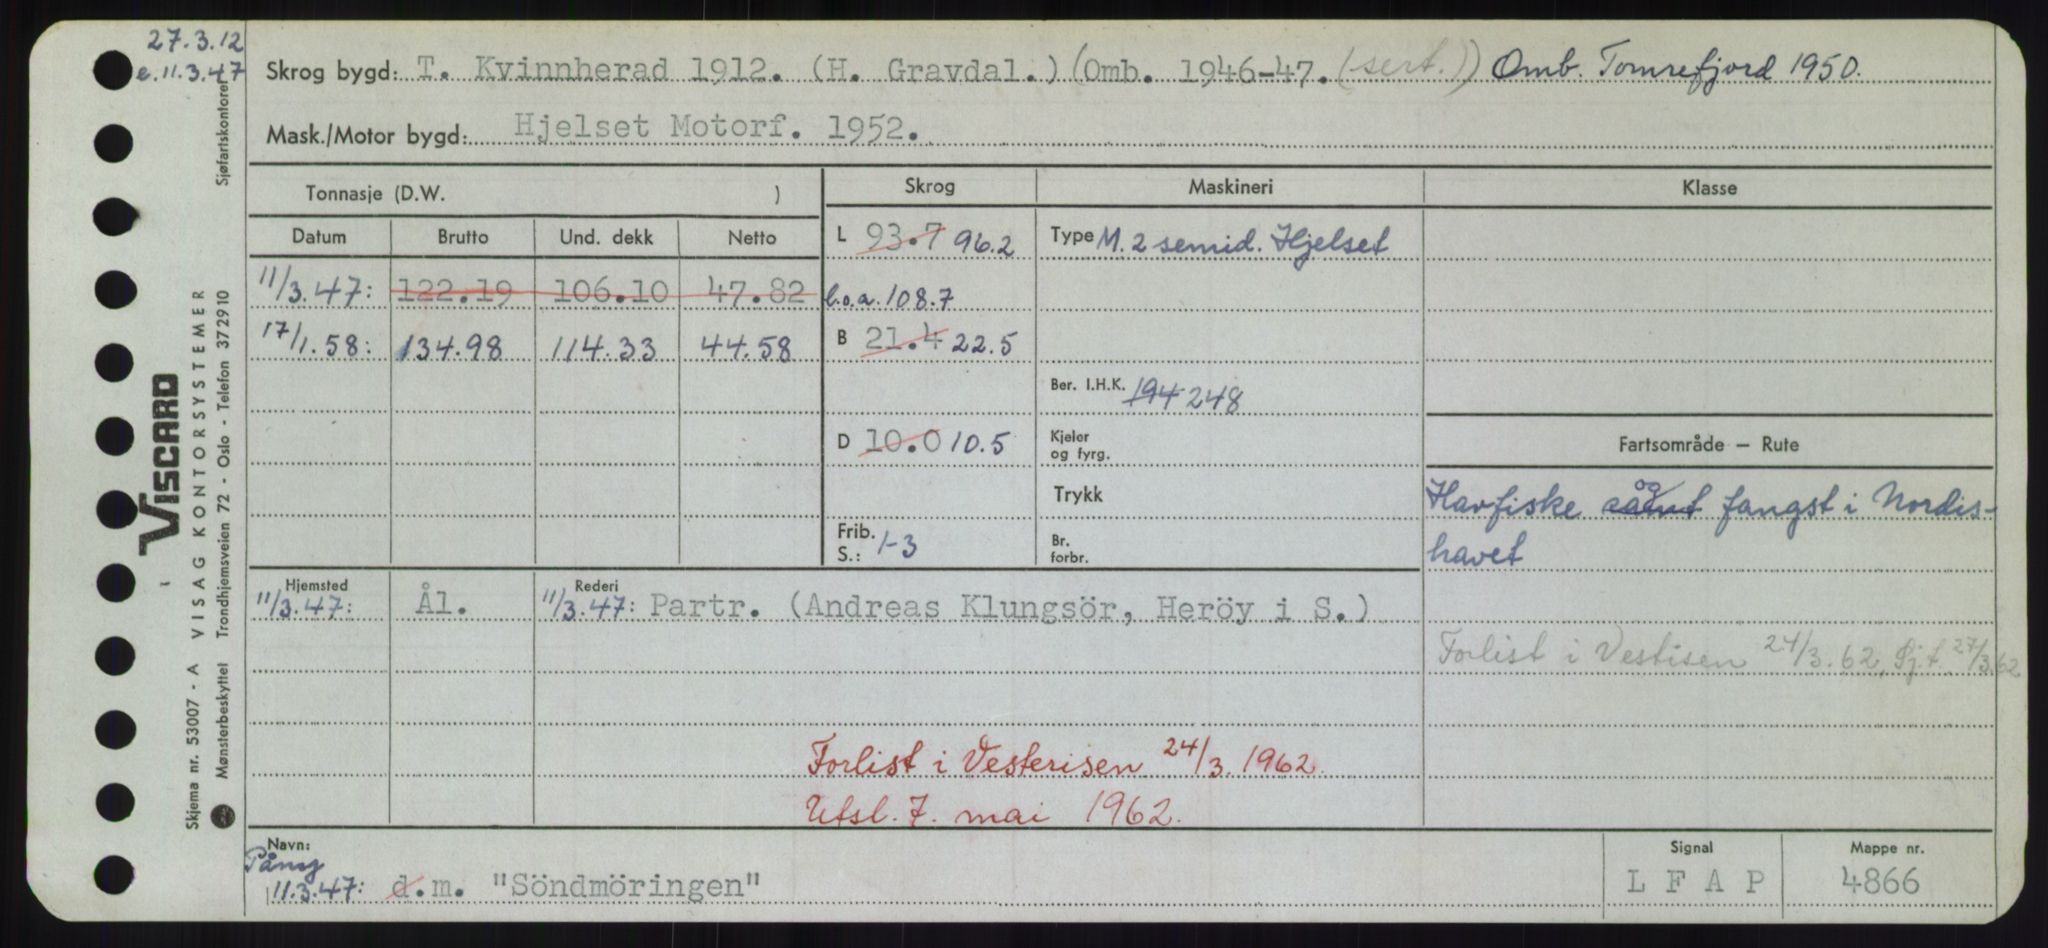 27.3.12
e. 11.3.47
Skrog bygd: T. Kvinnherad 1912. (H. Gravdal.) (Omb. 1946-47. (sert.)) Omb. Tomrefjord 1950.
Mask./Motor bygd: Hjelset Motorf. 1952.
Tonnasje (D.W. )
Skrog Maskineri Klasse
Datum Brutto Und. dekk Netto
L 93.7 96.2 Type M. 2 semid. Hjelset
11/3.47: 122.19 106.10 47.82 l.o.a. 108.7
17/1.58: 134.98 114.33 44.58 B 21.4 22.5
Ber. I.H.K. 194 248
D 10.0 10.5 Kjeler og fyrg. Fartsområde — Rute
Trykk Havfiske samt og fangst i Nordis-
Frib. S.: 1-3 Br. forbr. havet
Hjemsted Rederi
11/3.47: Ål. 11/3.47: Partr. (Andreas Klungsör, Heröy i S.)
Forlist i Vestisen 24/3.62, Sj.t. 27/3.62
Forlist i Vesterisen 24/3. 1962.
Utsl. 7. mai 1962.
Navn: Signal Mappe nr.
Påny
11.3.47: d.m. "Söndmöringen" L F A P 4866
Sjøfartskontoret
VISCARD
VISAG KONTORSYSTEMER
Trondhjemsveien 72 - Oslo - Telefon 372910
Skjema nr. 53007 - A
Mønsterbeskyttet